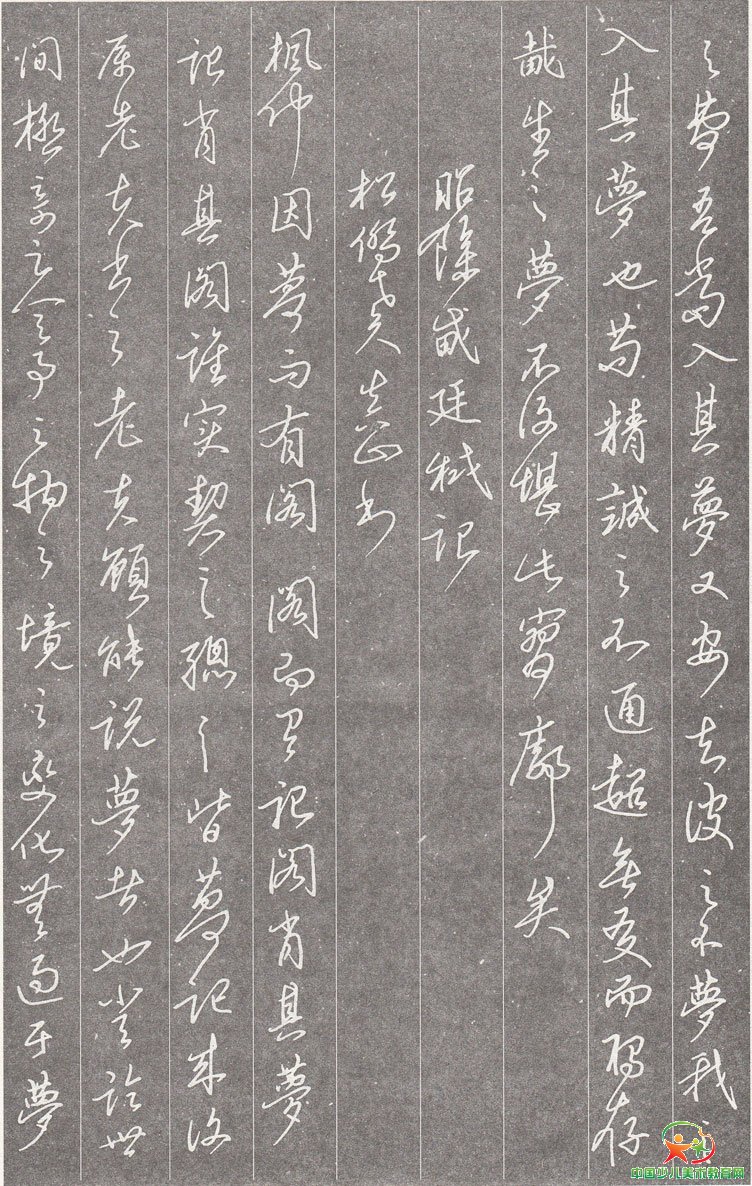 之夢吾當入其夢又安知彼之不夢我之
入其夢也苟精誠之不通超無友而獨存
哉生之夢不復堪此寥廓矣
昭餘戴廷栻記
松僑老人
楓仲因夢而有閣閣而有記閣肖其夢
記肖其閣誰實契之總之皆夢記成復
屬老夫書之老夫顧能說夢者也嘗論世
間極奇之人之事之物之境之變化無過于夢
中国少儿美术教育网